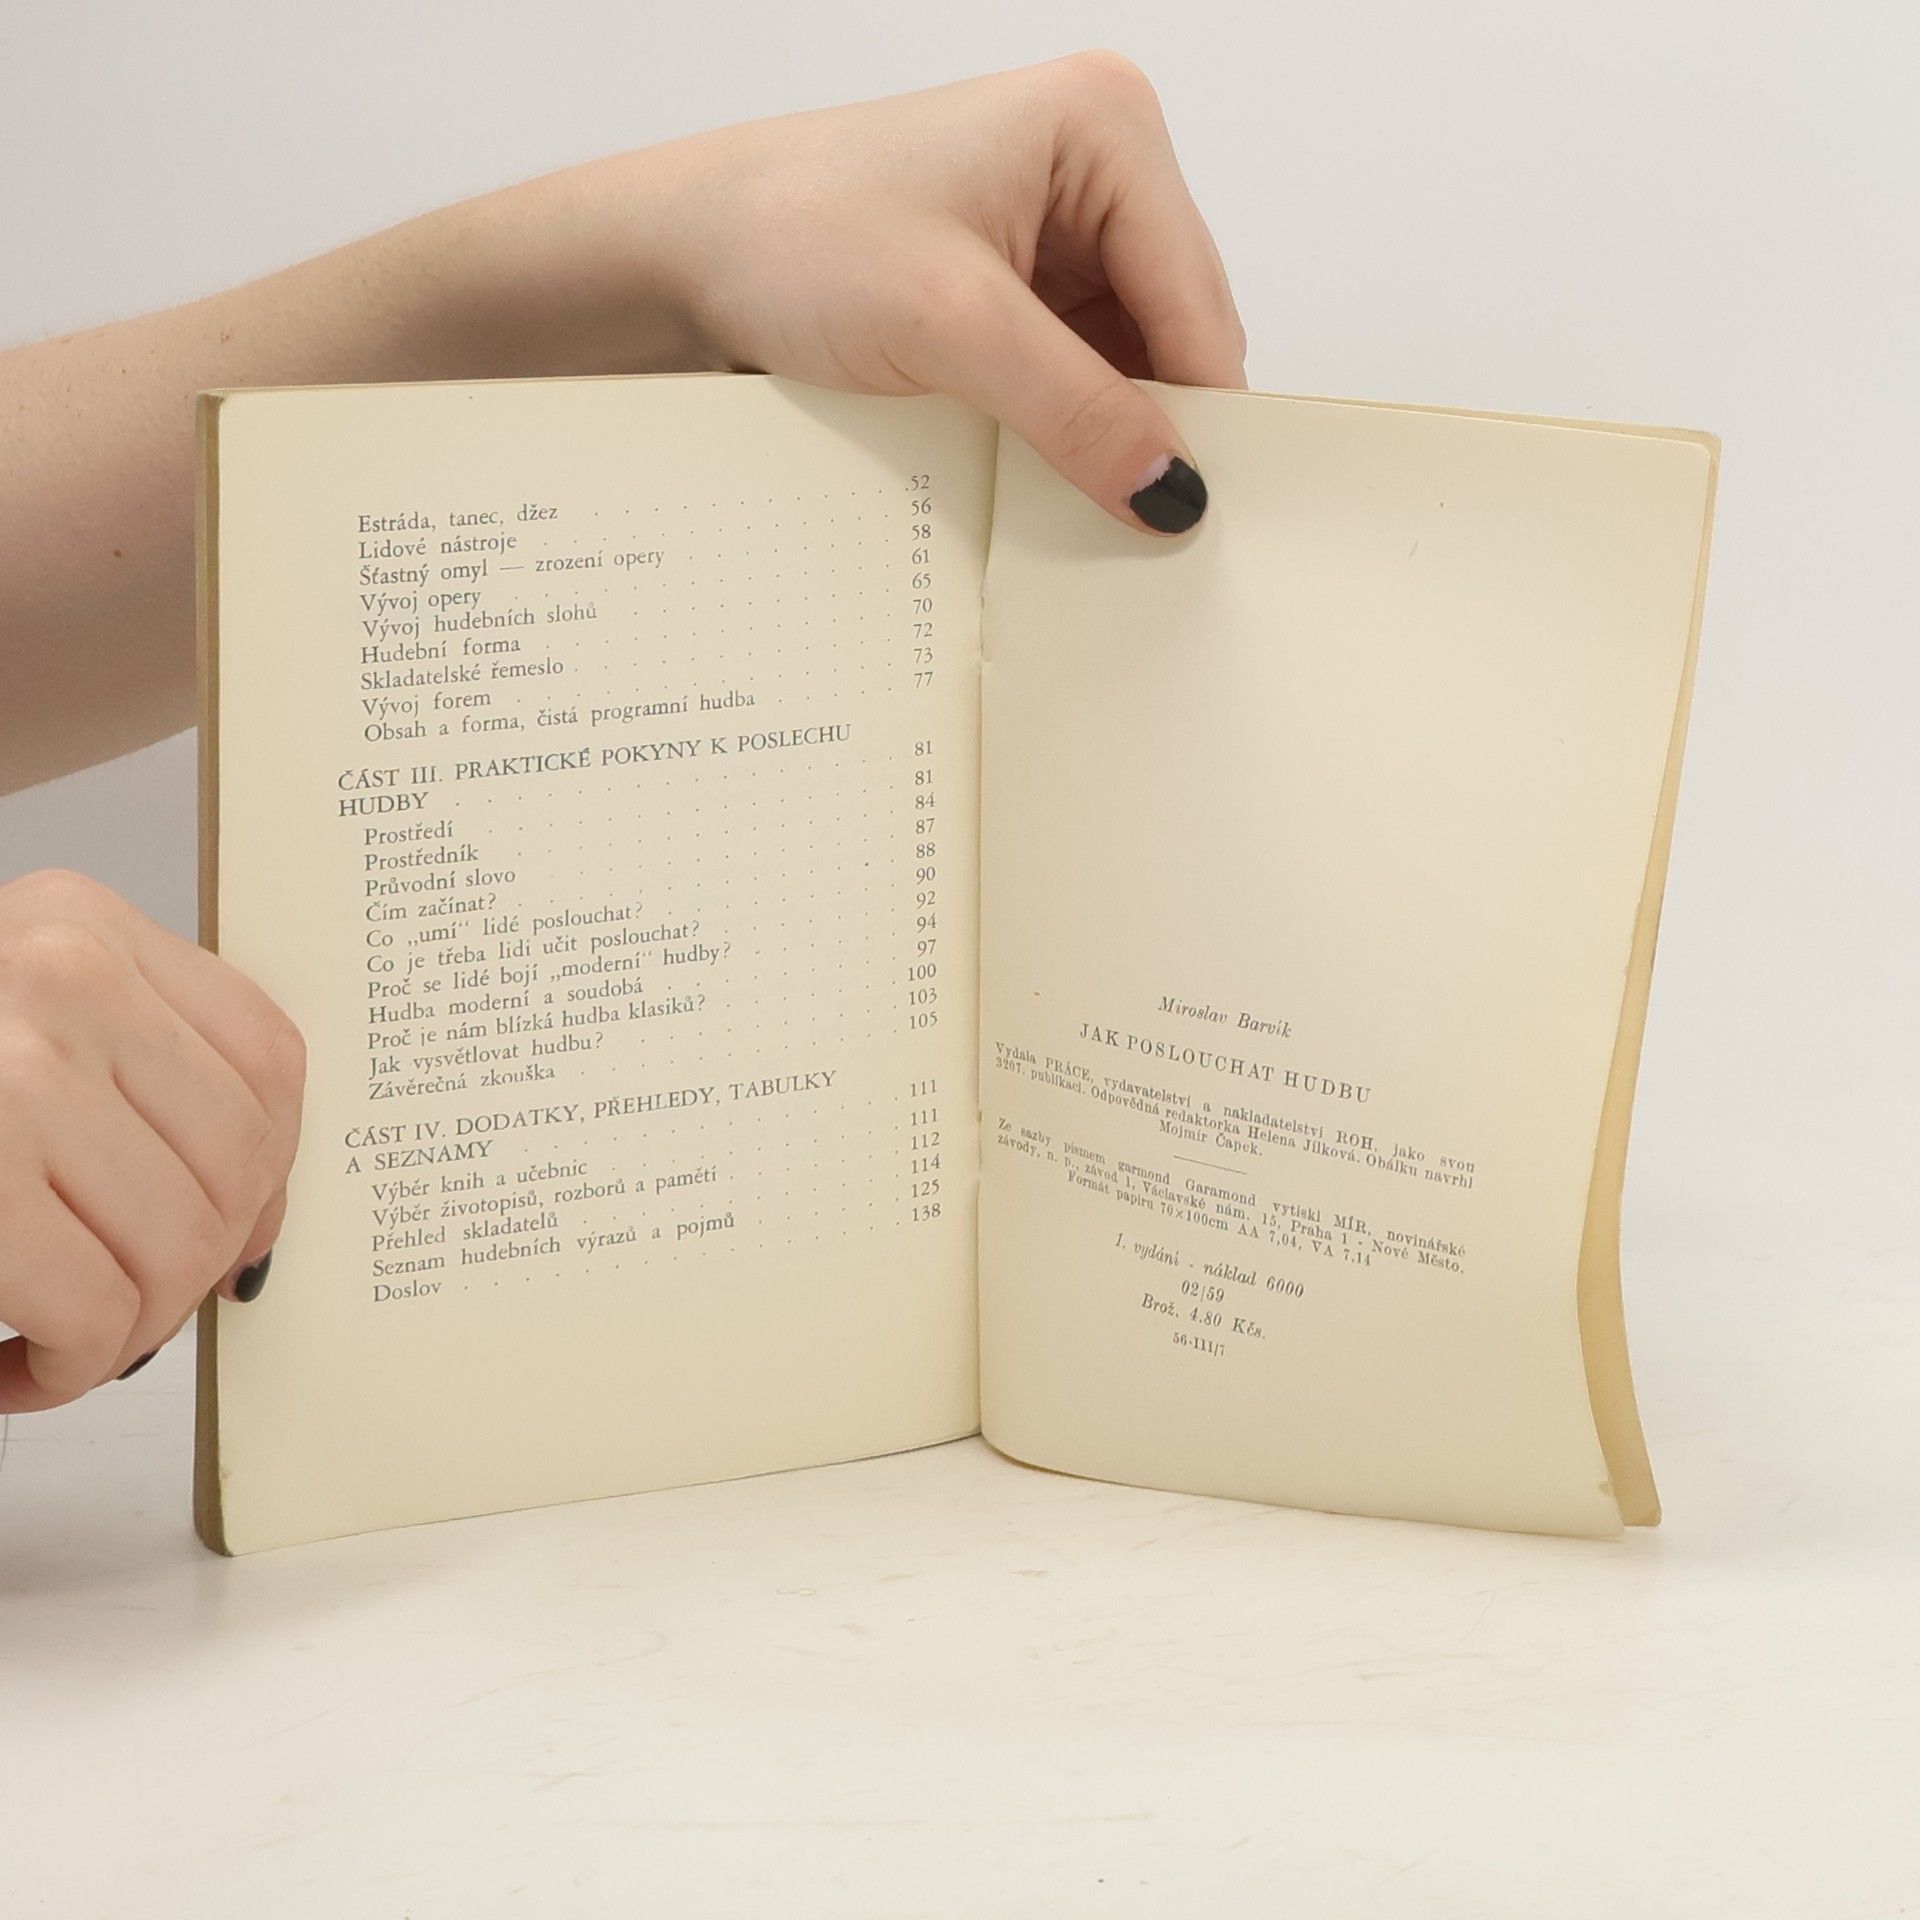 Estráda, tanec, džez . . . . . . . . . . . 52
Lidové nástroje . . . . . . . . . . . . . 56
Šťastný omyl — zrození opery . . . . . . . . 58
Vývoj opery . . . . . . . . . . . . . . 61
Vývoj hudebních slohů . . . . . . . . . . 65
Hudební forma . . . . . . . . . . . . . 70
Skladatelské řemeslo . . . . . . . . . . . . 72
Vývoj forem . . . . . . . . . . . . . . 73
Obsah a forma, čistá programní hudba . . . . . 77
ČÁST III. PRAKTICKÉ POKYNY K POSLECHU
HUDBY . . . . . . . . . . . . . . . . 81
Prostředí . . . . . . . . . . . . . . . 81
Prostředník . . . . . . . . . . . . . . 84
Průvodní slovo . . . . . . . . . . . . . 87
Čím začínat? . . . . . . . . . . . . . . 88
Co „umí“ lidé poslouchat? . . . . . . . . . 90
Co je třeba lidi učit poslouchat? . . . . . . . 92
Proč se lidé bojí „moderní“ hudby? . . . . . . 94
Hudba moderní a soudobá . . . . . . . . . 97
Proč je nám blízká hudba klasiků? . . . . . . . 100
Jak vysvětlovat hudbu? . . . . . . . . . . 103
Závěrečná zkouška . . . . . . . . . . . . 105
ČÁST IV. DODATKY, PŘEHLEDY, TABULKY
A SEZNAMY . . . . . . . . . . . . . . 111
Výběr knih a učebnic . . . . . . . . . . . 111
Výběr životopisů, rozborů a pamětí . . . . . . . 112
Přehled skladatelů . . . . . . . . . . . . 114
Seznam hudebních výrazů a pojmů . . . . . . 125
Doslov . . . . . . . . . . . . . . . . 138
Miroslav Barvík
JAK POSLOUCHAT HUDBU
Vydala PRÁCE, vydavatelství a nakladatelství ROH, jako svou
3207. publikaci. Odpovědná redaktorka Helena Jílková. Obálku navrhl
Mojmír Čapek.
Ze sazby písmem garmond Garamond vytiskl MÍR, novinářské
závody, n. p., závod 1, Václavské nám. 15, Praha 1 - Nové Město.
Formát papíru 70×100cm AA 7,04, VA 7,14
1. vydání - náklad 6000
02/59
Brož. 4.80 Kčs.
56-III/7